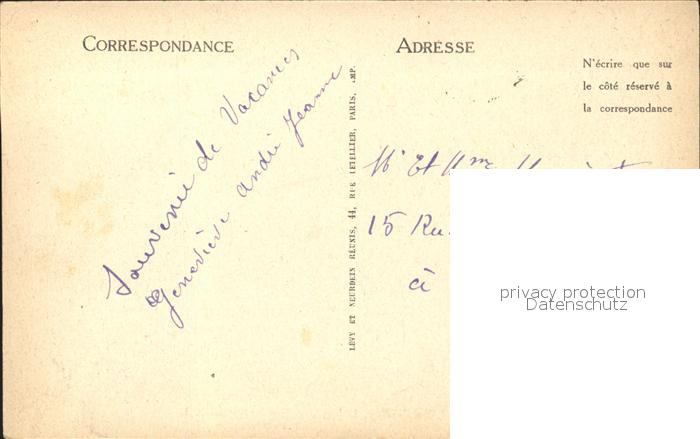 CORRESPONDANCE
ADRESSE
N'écrire que sur
le côté réservé à
la correspondance
Souvenir de Vacances
Geneviève André Jeanne
LÉVY ET NEURDEIN RÉUNIS, 44, RUE LETELLIER, PARIS, IMP.
Mr Et Mme
15 Ru
à
privacy protection
Datenschutz